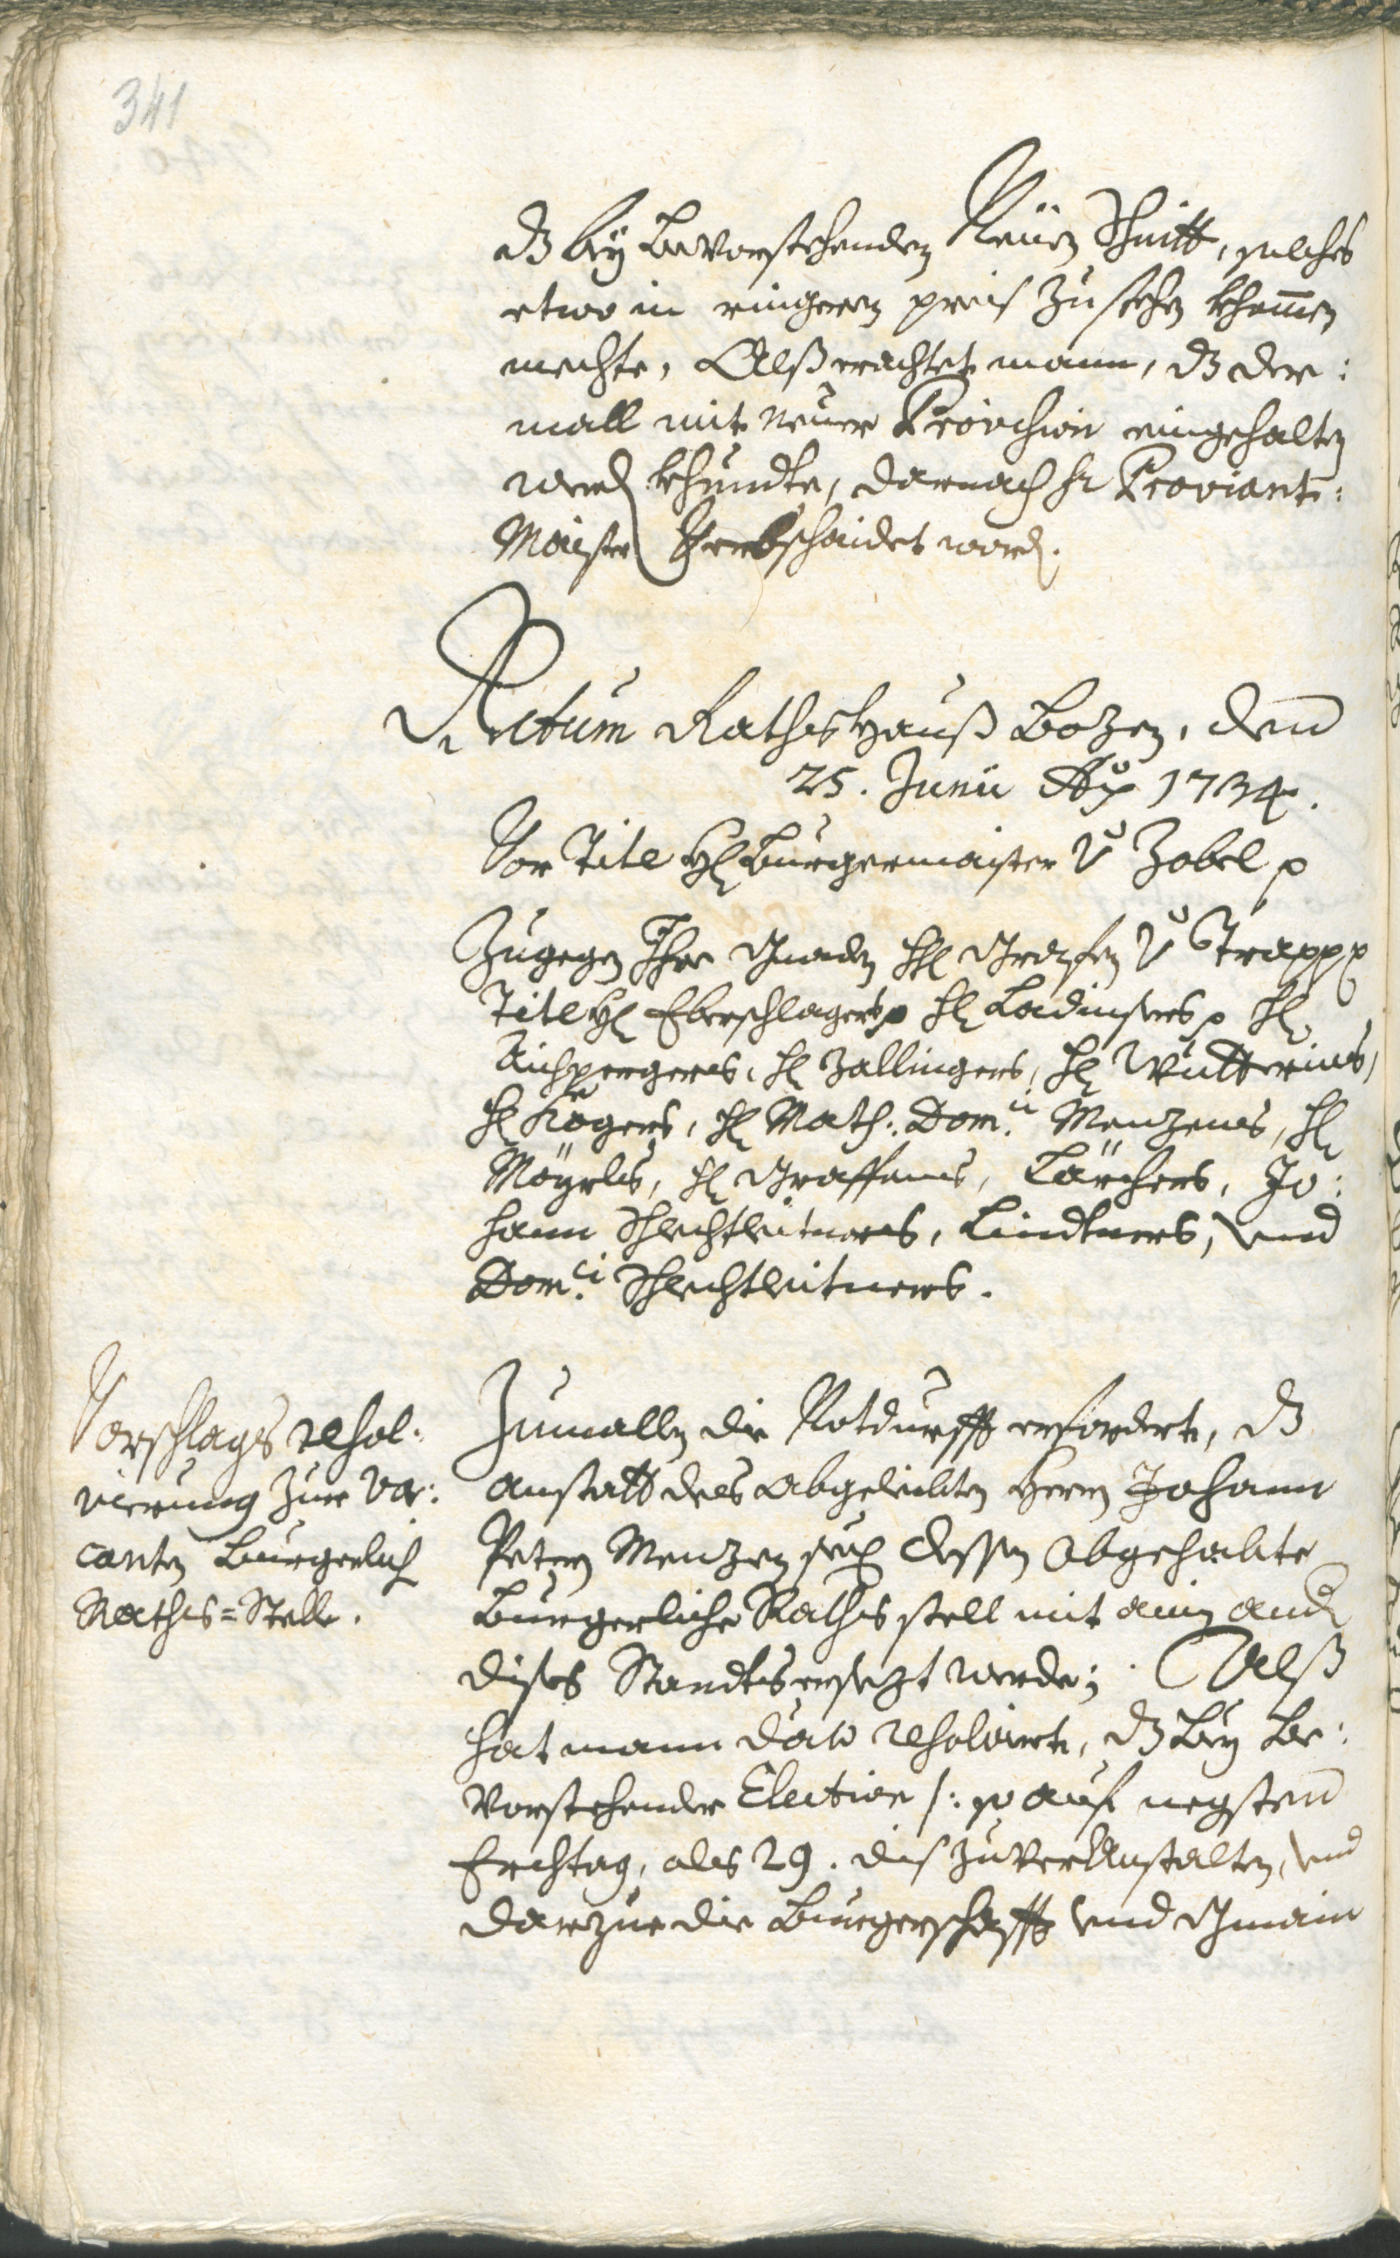 341
dz bey bevorstehenden Neüen Schnitt, solches
etwo in ringeren preis zu stehen khomen
mechte, Alß erachtet mann, dz der:
mall mit neuer Provision eingehalten
werd khundte, darnach hr Proviant:
Maister Verbschaidet word.
Actum Rathshauß Bozen, den
25. Junii Ao 1734.
Vor Titl H: Burgermaister v Zobel p
Zugegen Ihr Gnaden H: Grafen v Trapp p
Titl H: Eberschlagers p H: Ladinsers p H:
Aichpergers, H: Zallingers, H: Wutterins,
H: Kögers, H: Math: Dom:ci Menzens, H:
Mayrls, H: Graffens, Lärchers, Jo:
hann Schlechtleitners, Lindtners, und
Dom:ci Schlechtleitners.
Vorschlags resol:
vierung zur va:
canten Burgerlich
Raths=Stelle.
Zumallen die Notdurfft erfordert, dz
anstatt des abgeleibten Herrn Johann
Petern Menzen sel: dessen abgehabte
Burgerliche Raths stell mit ain and
dises Standts ersezt werde; Alß
hat mann dato resolviert, dz bey be:
vorstehender Election /: so auf negsten
Erchtag, als 29. dis zu veranstalten, und
darzue die Burgerschafft und Gmain